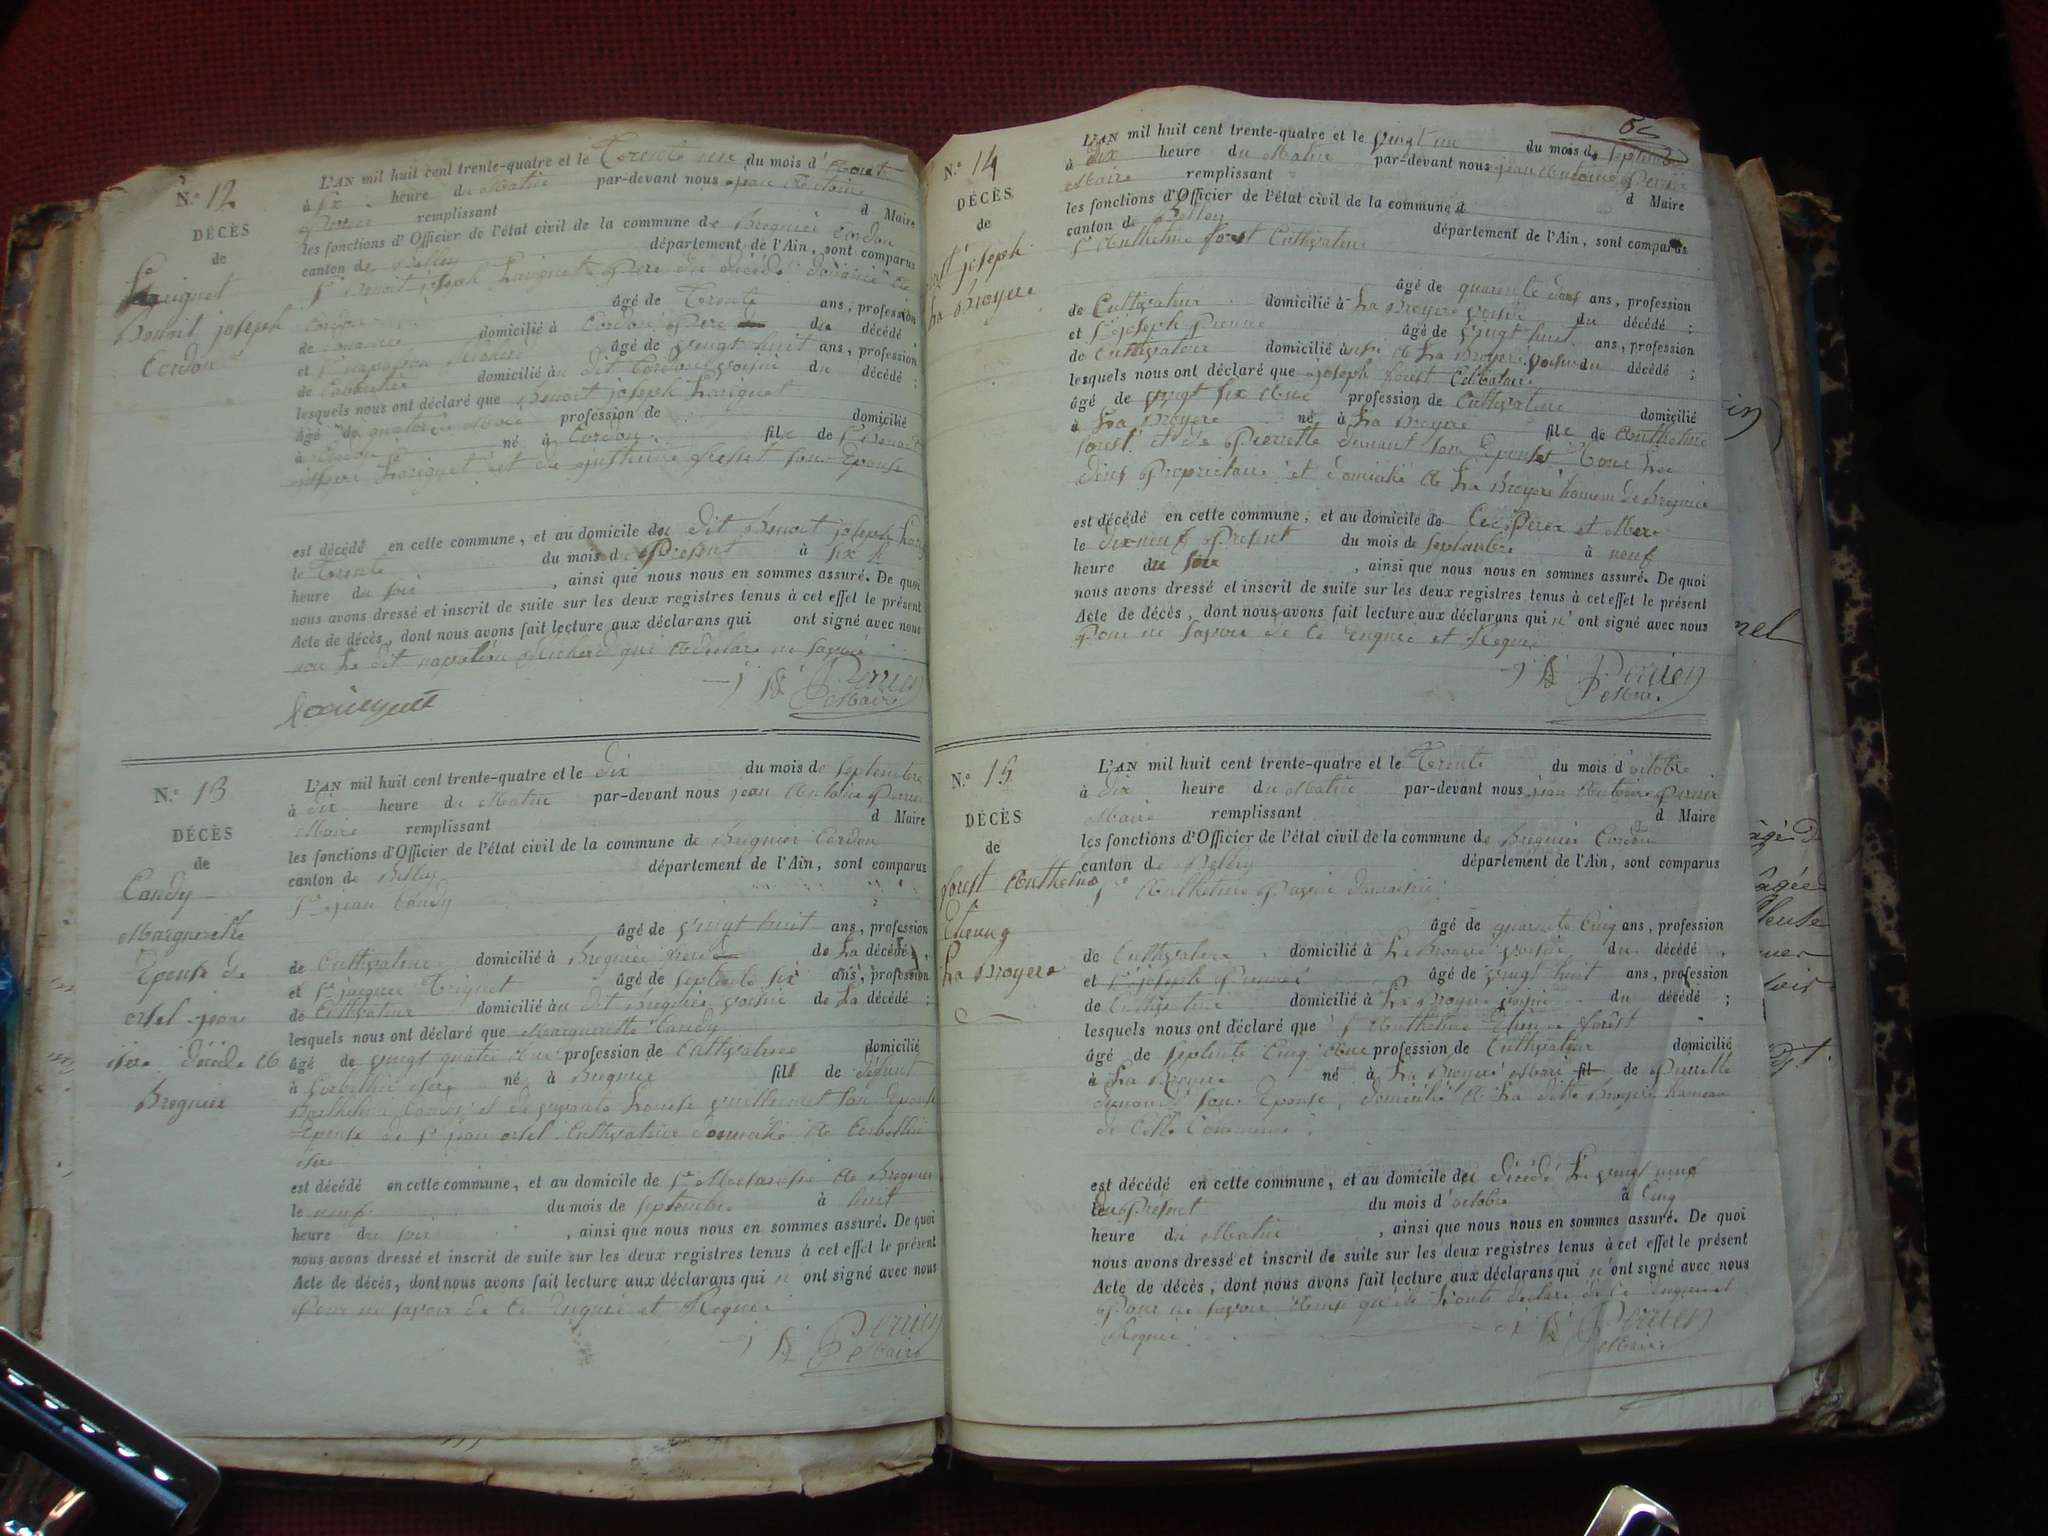 N.° 12
DÉCÈS
de
Benoit joseph
Cordon
L'AN mil huit cent trente-quatre et le Trente un du mois d'Aout
à six heure du Matin par-devant nous jean Antoine
Perrier remplissant d Maire
les fonctions d'Officier de l'état civil de la commune de Bregnier Cordon
canton de Belley département de l'Ain, sont comparus
S.r Benoit joseph Pere du décédé
Cordon âgé de Trente ans, profession
de domicilié à Cordon Pere du décédé,
et S.r napoleon âgé de vingt huit ans, profession
de domicilié à u dit Cordon voisin du décédé;
lesquels nous ont déclaré que Benoit joseph
âgé de quatorze Mois profession de domicilié
à Cordon né à Cordon fils de S.r Benoit
joseph et de justinne son Epouse
est décédé en cette commune, et au domicile du dit Benoit joseph
le Trente du mois d Present à six h
heure du soir, ainsi que nous nous en sommes assuré. De quoi
nous avons dressé et inscrit de suite sur les deux registres tenus à cet effet le présent
Acte de décès, dont nous avons fait lecture aux déclarans qui ont signé avec nous
non Le dit napoléon qui a déclaré ne savoir
Perrier
Maire
N.° 13
DÉCÈS
de
Candy
Margueritte
Epouse de
ortel jean
isere décédé a
Bregnier
L'AN mil huit cent trente-quatre et le dix du mois de septembre
à dix heure du Matin par-devant nous jean Antoine Perrier
Maire remplissant d Maire
les fonctions d'Officier de l'état civil de la commune de Bregnier Cordon
canton de Belley département de l'Ain, sont comparus
S.r jean Candy
âgé de vingt huit ans, profession
de Cultivateur domicilié à Bregnier frere de La décédé,
et S.r jacques Triquet âgé de septente six ans, profession
de Cultivateur domicilié à u dit Bregnier voisin de La décédé;
lesquels nous ont déclaré que Margueritte Candy
âgé de vingt quatre Ans profession de Cultivatrice domicilié
à Corbellin isere né à Bregnier fille de défunt
Barthelemi Candy et de vivante Louise Guillermet son Epouse
Epouse de S.r jean ortel Cultivatrice domicilié a Corbellin
isere
est décédé en cette commune, et au domicile de S.r a Bregnier
le neuf du mois de septembre à huit
heure du soir, ainsi que nous nous en sommes assuré. De quoi
nous avons dressé et inscrit de suite sur les deux registres tenus à cet effet le présent
Acte de décès, dont nous avons fait lecture aux déclarans qui n' ont signé avec nous
Pour ne savoir de ce Enquis et Requis
Perrier
Maire
N.° 14
DÉCÈS
de
joseph
La Broyere
L'AN mil huit cent trente-quatre et le vingt un du mois de septembre
à dix heure du Matin par-devant nous jean Antoine Perrier
Maire remplissant d Maire
les fonctions d'Officier de l'état civil de la commune d
canton de Belley département de l'Ain, sont comparus
S.r Anthelme forest Cultivateur
âgé de quarente deux ans, profession
de Cultivateur domicilié à La Broyere voisin du décédé;
et S.r joseph âgé de vingt huit ans, profession
de Cultivateur domicilié à La Broyere voisin du décédé;
lesquels nous ont déclaré que joseph forest Celibataire
âgé de vingt six Ans profession de Cultivateur domicilié
à La Broyere né à La Broyere fils de Anthelme
forest et de Pierrette dunant son Epouse Tous Les
deux Proprietaire et domicilié a La Broyere hameau de Bregnier
est décédé en cette commune, et au domicile de Ces Perer et Mere
le dix-neuf Present du mois de septembre à neuf
heure du soir, ainsi que nous nous en sommes assuré. De quoi
nous avons dressé et inscrit de suite sur les deux registres tenus à cet effet le présent
Acte de décès, dont nous avons fait lecture aux déclarans qui n' ont signé avec nous
Pour ne savoir de ce Enquis et Requis
Perrier
Maire
N.° 15
DÉCÈS
de
forest Anthelme
La Broyere
L'AN mil huit cent trente-quatre et le Trente du mois d'octobre
à dix heure du Matin par-devant nous jean Antoine Perrier
Maire remplissant d Maire
les fonctions d'Officier de l'état civil de la commune de Bregnier Cordon
canton de Belley département de l'Ain, sont comparus
S.r Anthelme
âgé de quarente Cinq ans, profession
de Cultivateur domicilié à La Broyere voisin du décédé,
et S.r joseph âgé de vingt huit ans, profession
de Cultivateur domicilié à La Broyere voisin du décédé;
lesquels nous ont déclaré que S.r Anthelme forêst
âgé de septente Cinq Ans profession de Cultivateur domicilié
à La Broyere né à La Broyere Mari fil de Pierrette
dunand son Epouse, domicilié a La ditte Broyere hameau
de Cette Commune.
est décédé en cette commune, et au domicile du décédé Le vingt neuf
du Present du mois d'octobre à Cinq
heure du Matin, ainsi que nous nous en sommes assuré. De quoi
nous avons dressé et inscrit de suite sur les deux registres tenus à cet effet le présent
Acte de décès, dont nous avons fait lecture aux déclarans qui n' ont signé avec nous
Pour ne savoir Ainsi qu'ils L'onts declaré de ce Enquis et
Requis
Perrier
Maire